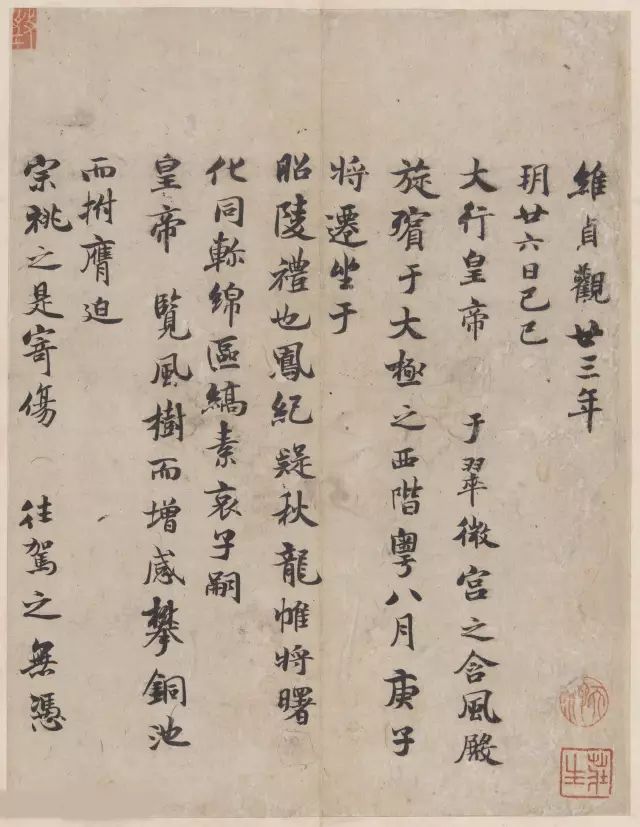 維貞觀廿三年
玥廿六日己巳
大行皇帝 于翠微宮之含風殿
旋殯于大極之西階粵八月庚子
将遷坐于
昭陵禮也鳳紀疑秋龍帷将曙
化同軫綿區縞素哀子嗣
皇帝 覽風樹而增感攀銅池
而拊膺迫
宗祧之是寄傷 往駕之無憑